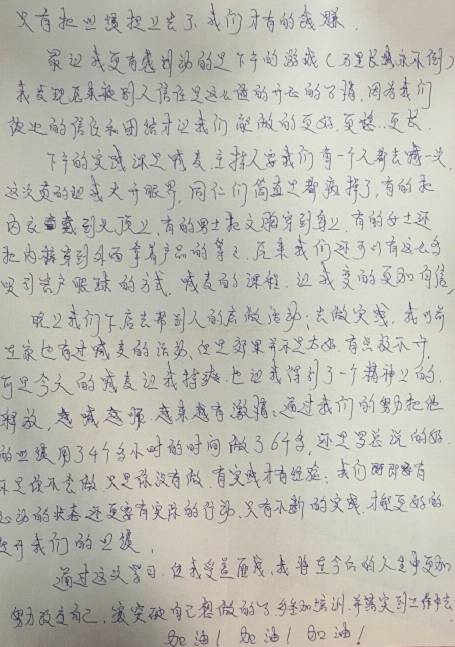 只有把业绩提上去了,我们才有的钱赚.
最让我更有感动的是下午的游戏(万里长城永不倒)
我发现原来被别人信任是这么值的开心的事情,因为我们
彼此的信任和团结才让我们能做的更好.更稳.更长.
下午的实践课是喊麦,主持人要我们每一个人都去喊一次,
这次真的让我大开眼界,同仁们简直是都疯掉了,有的把
内衣戴到头顶上,有的男士把文胸穿到身上,有的女士还
把内裤穿到外面拿着产品的等等,原来我们还可以有这么多
吸引客户眼球的方式,喊麦的课程,让我变的更加自信,
晚上我们下店去帮别人的店做活动;去做实践,我以前
在家也有过喊麦的活动,但是效果并不是太好,有点放不开,
可是今天的喊麦让我持续,也让我得到了一个精神上的.
释放,越喊越顺,越来越有激情;通过我们的努力把他
的业绩用了4个多小时的时间做了64多,还是罗总说的好.
不是你不会做,只是你没有做,有实践才有经验;我们即要有
心动的状态,还更要有实际的行动,只有不断的实践,才能更好的
提升我们的业绩,
通过这次学习,使我受益匪浅,我将在今后的人生中更加
努力改变自己,突破自己想做的事,多参加培训,并落实到工作中去,
加油!加油!加油!